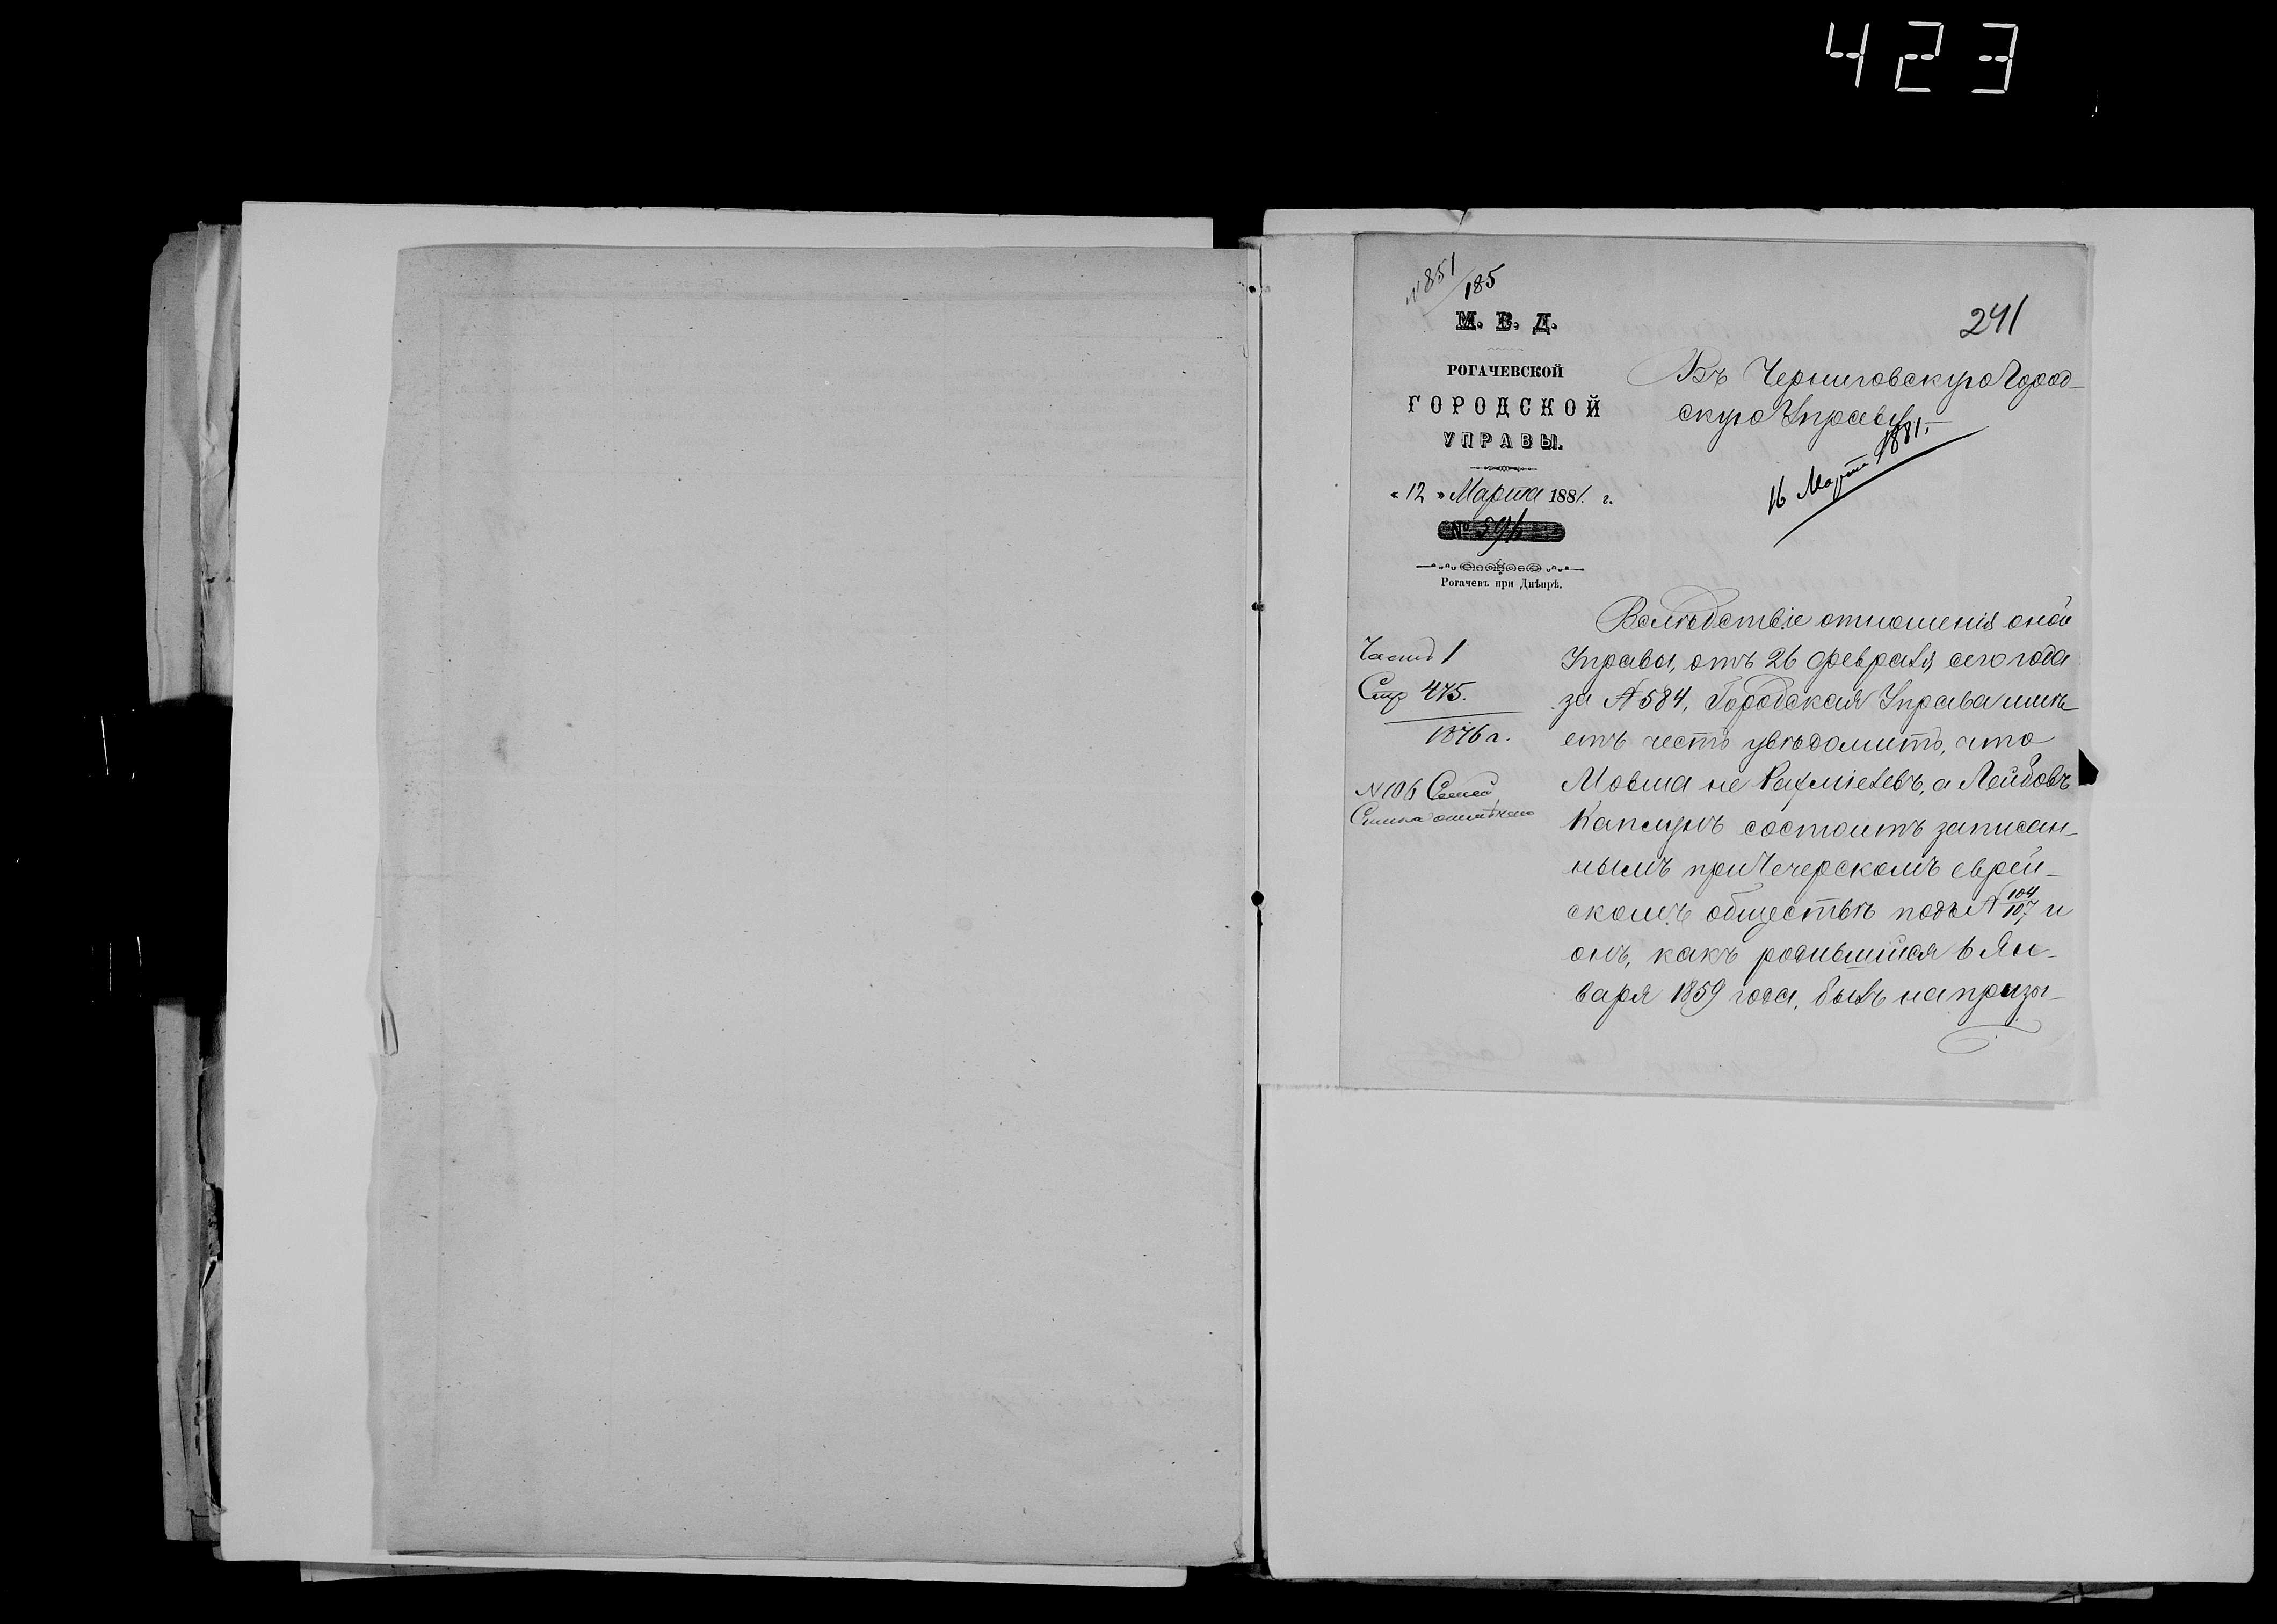 423
№ 851/185
241
М. В. Д.
РОГАЧЕВСКОЙ
ГОРОДСКОЙ
УПРАВЫ.
« 12 » Марта 1881. г.
№ 596
Рогачевъ при Днѣпрѣ.
Въ Черниговскую Город-
скую Управу
16 Марта 1881.
Часть 1
Стр 475.
1876 г.
№ 106 Семей
Вслѣдствіе отношенія оной
Управы, отъ 26 февраля сего года
за № 584, Городская Управа имѣ-
етъ честь увѣдомить, что
Мовша не Рахміелевъ, а Лейбовъ
Каплунъ состоитъ записан-
нымъ при Чечерскомъ еврей-
скомъ обществѣ подъ № 104/107 и
онъ, какъ родившійся 6 Ян-
варя 1859 года, былъ на призы-